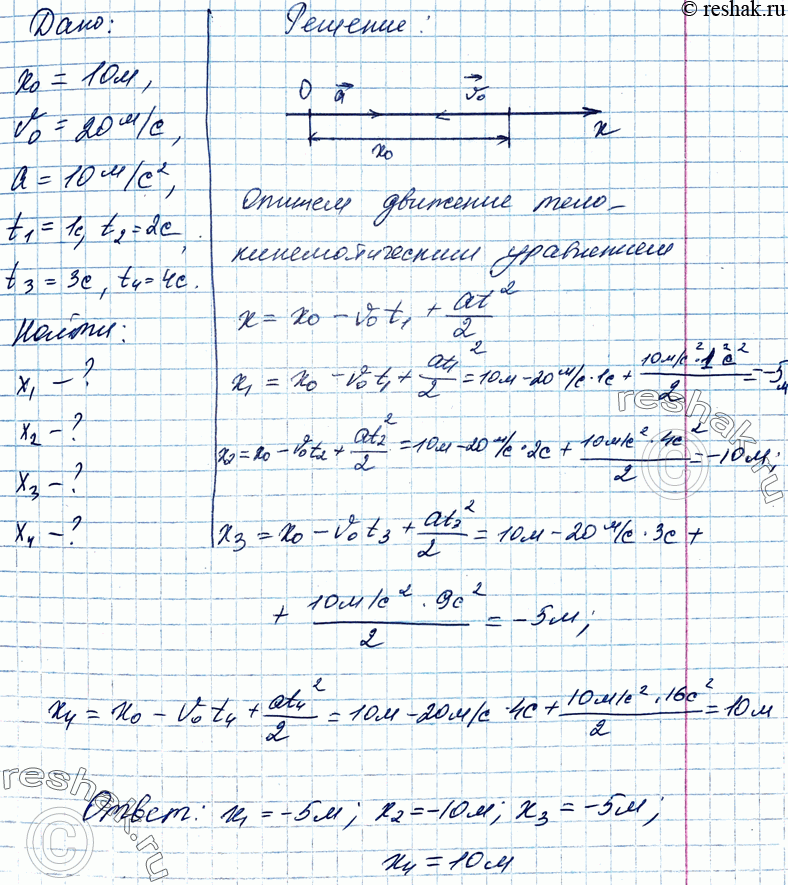 © reshak.ru
Дано:
x₀ = 10м,
v₀ = 20 м/с,
a = 10 м/с²,
t₁ = 1с, t₂ = 2с,
t₃ = 3с, t₄ = 4с.
Найти:
x₁ - ?
x₂ - ?
x₃ - ?
x₄ - ?
Решение:
0 a⃗ v⃗₀
x₀ x
Опишем движение тело-
кинематическим уравнением
x = x₀ - v₀t₁ + at²/2
x₁ = x₀ - v₀t₁ + at₁²/2 = 10м - 20 м/с · 1с + 10м/с² · 1²с²/2 = -5м
x₂ = x₀ - v₀t₂ + at₂²/2 = 10м - 20 м/с · 2с + 10м/с² · 4с²/2 = -10м;
x₃ = x₀ - v₀t₃ + at₃²/2 = 10м - 20 м/с · 3с +
+ 10м/с² · 9с²/2 = -5м;
x₄ = x₀ - v₀t₄ + at₄²/2 = 10м - 20м/с · 4с + 10м/с² · 16с²/2 = 10м
Ответ: x₁ = -5м; x₂ = -10м; x₃ = -5м;
x₄ = 10м
reshak.ru
©
reshak.ru
©